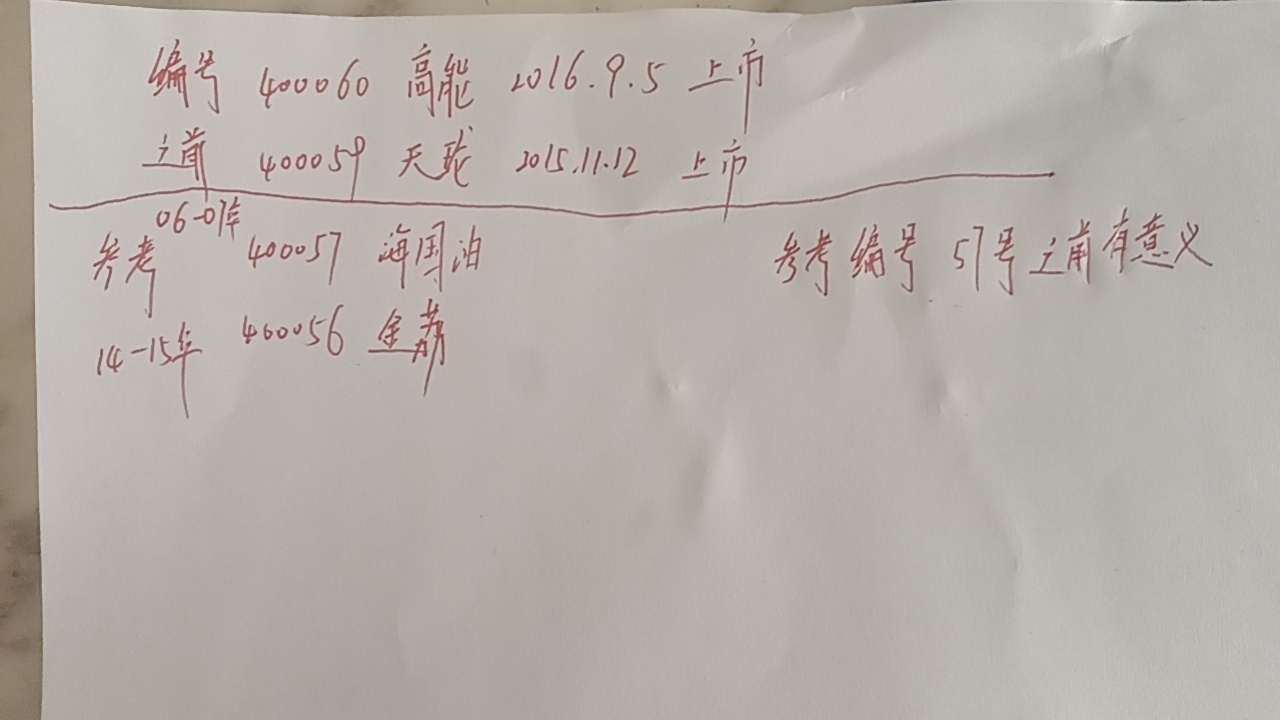 编号 400060 高能 2016.9.5 上市
之前 400059 天珑 2015.11.12 上市
06-07年
参考 400057 海国泊 参考编号 57号之前有意义
14-15年 400056 金荔